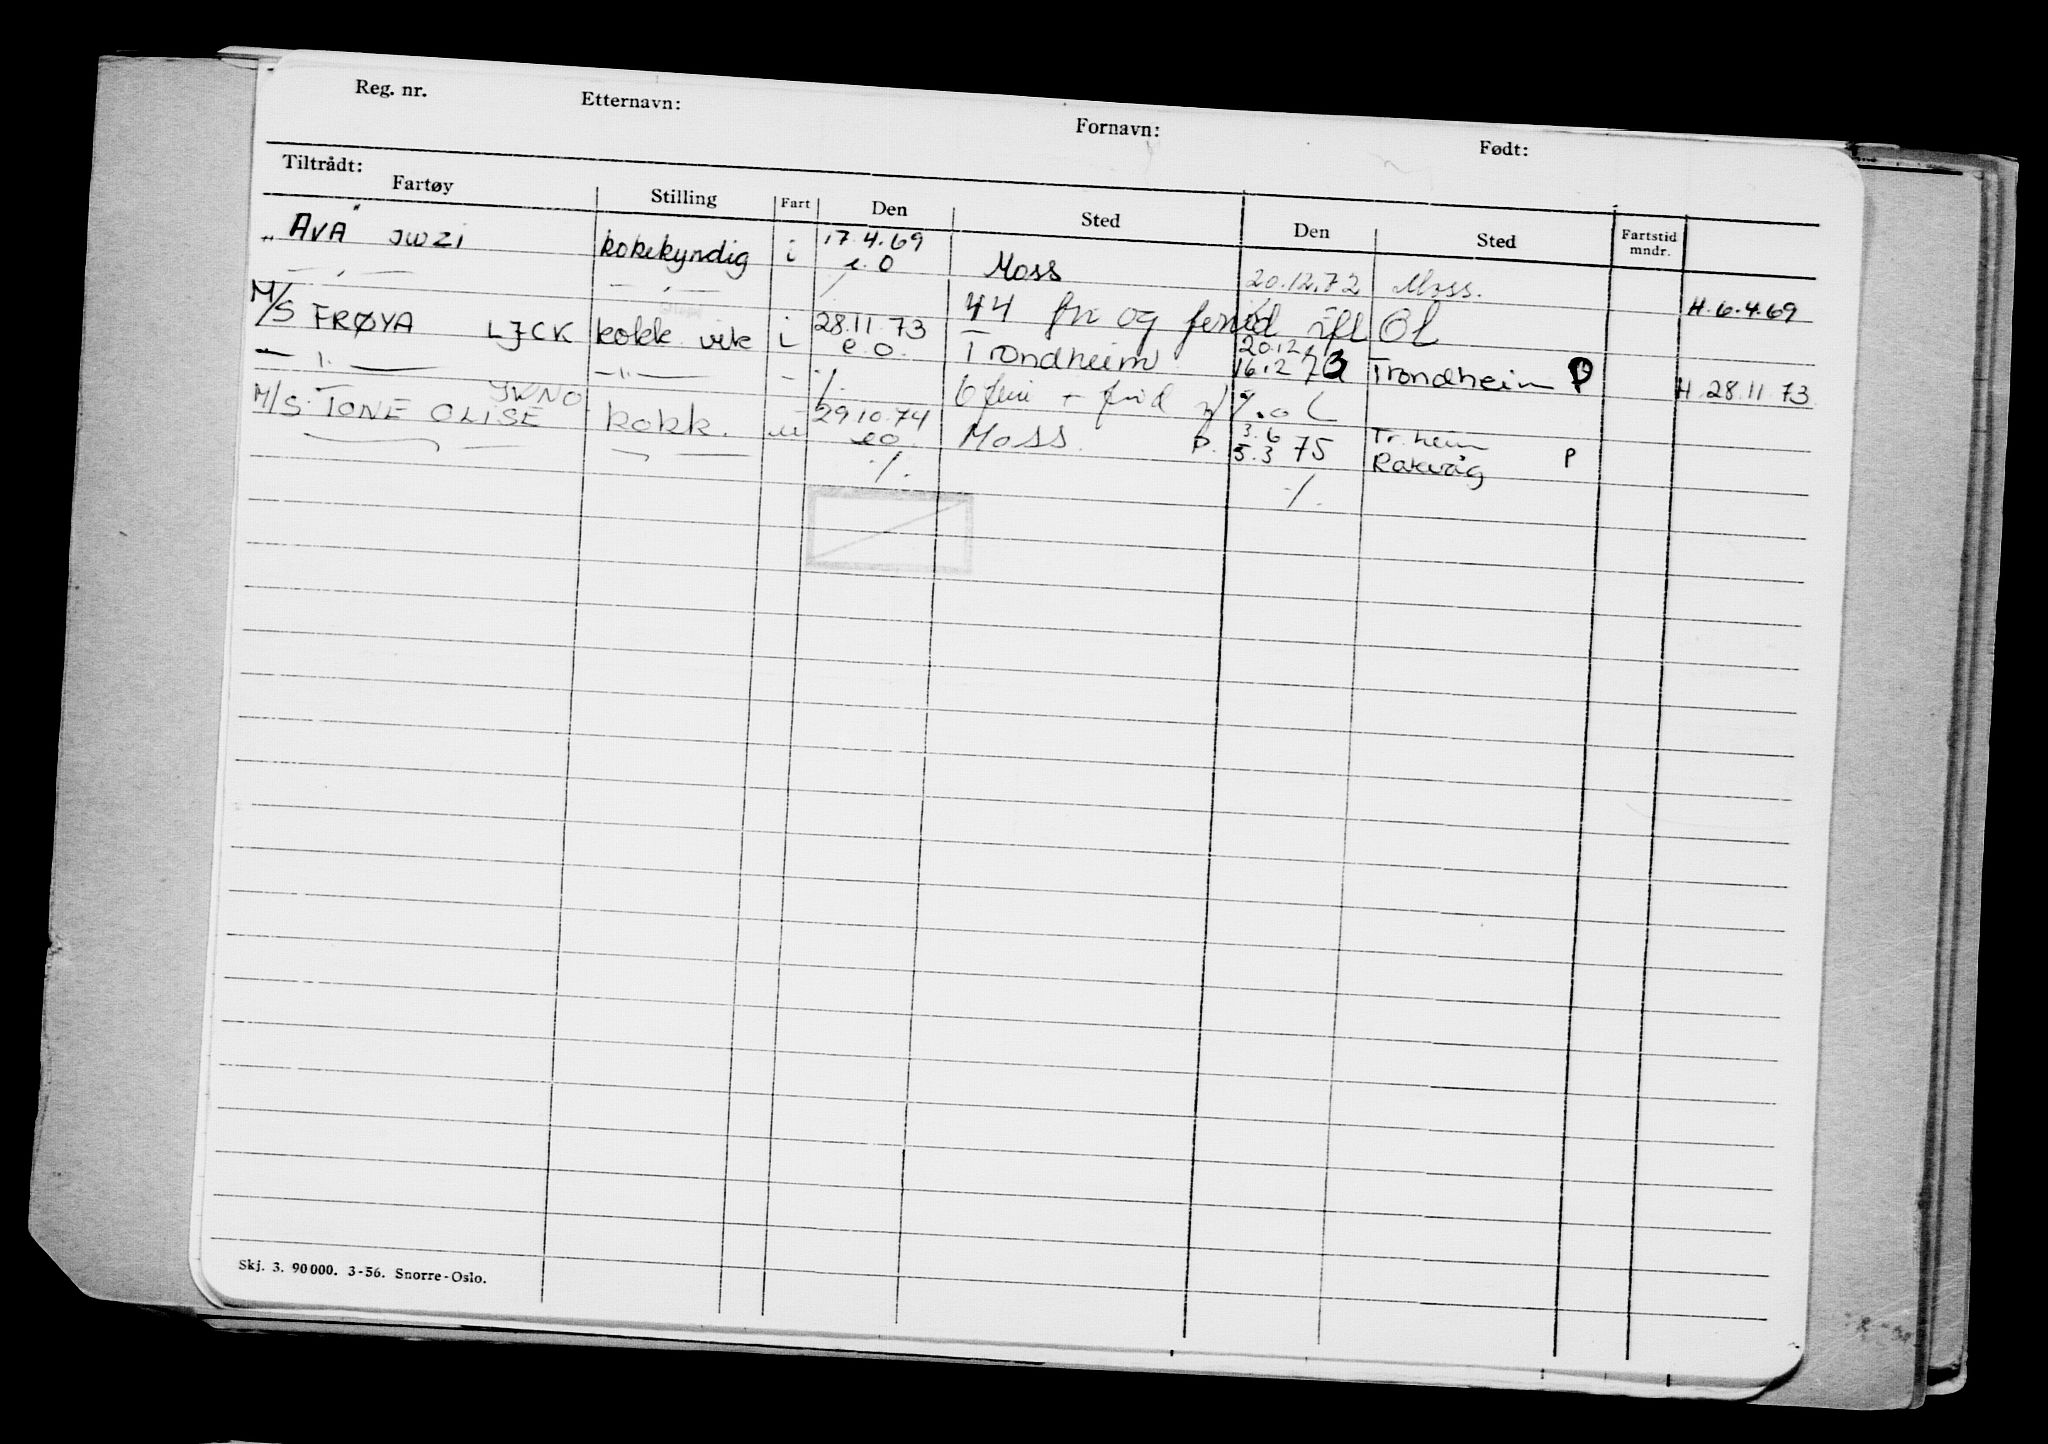 Reg. nr. Etternavn: Fornavn: Født:
Tiltrådt:
Fartøy Stilling Fart Den Sted Den Sted Fartstid mndr.
"AVA" JWZI kokekyndig i 17.4.69 Moss 20.12.72 Moss. H. 6.4.69
e.o
44 og Øl
M/S FRØYA LJCK kokk i 28.11.73 Trondheim 20.12 Trondheim P H 28.11.73
e.o. 16.12 73
6
M/S TONE ELISE JWNO kokk. u 29.10.74 Moss. P. 3.6 Tr.heim
eo 5.3 75 Råkvåg P
Skj. 3. 90000. 3-56. Snorre-Oslo.